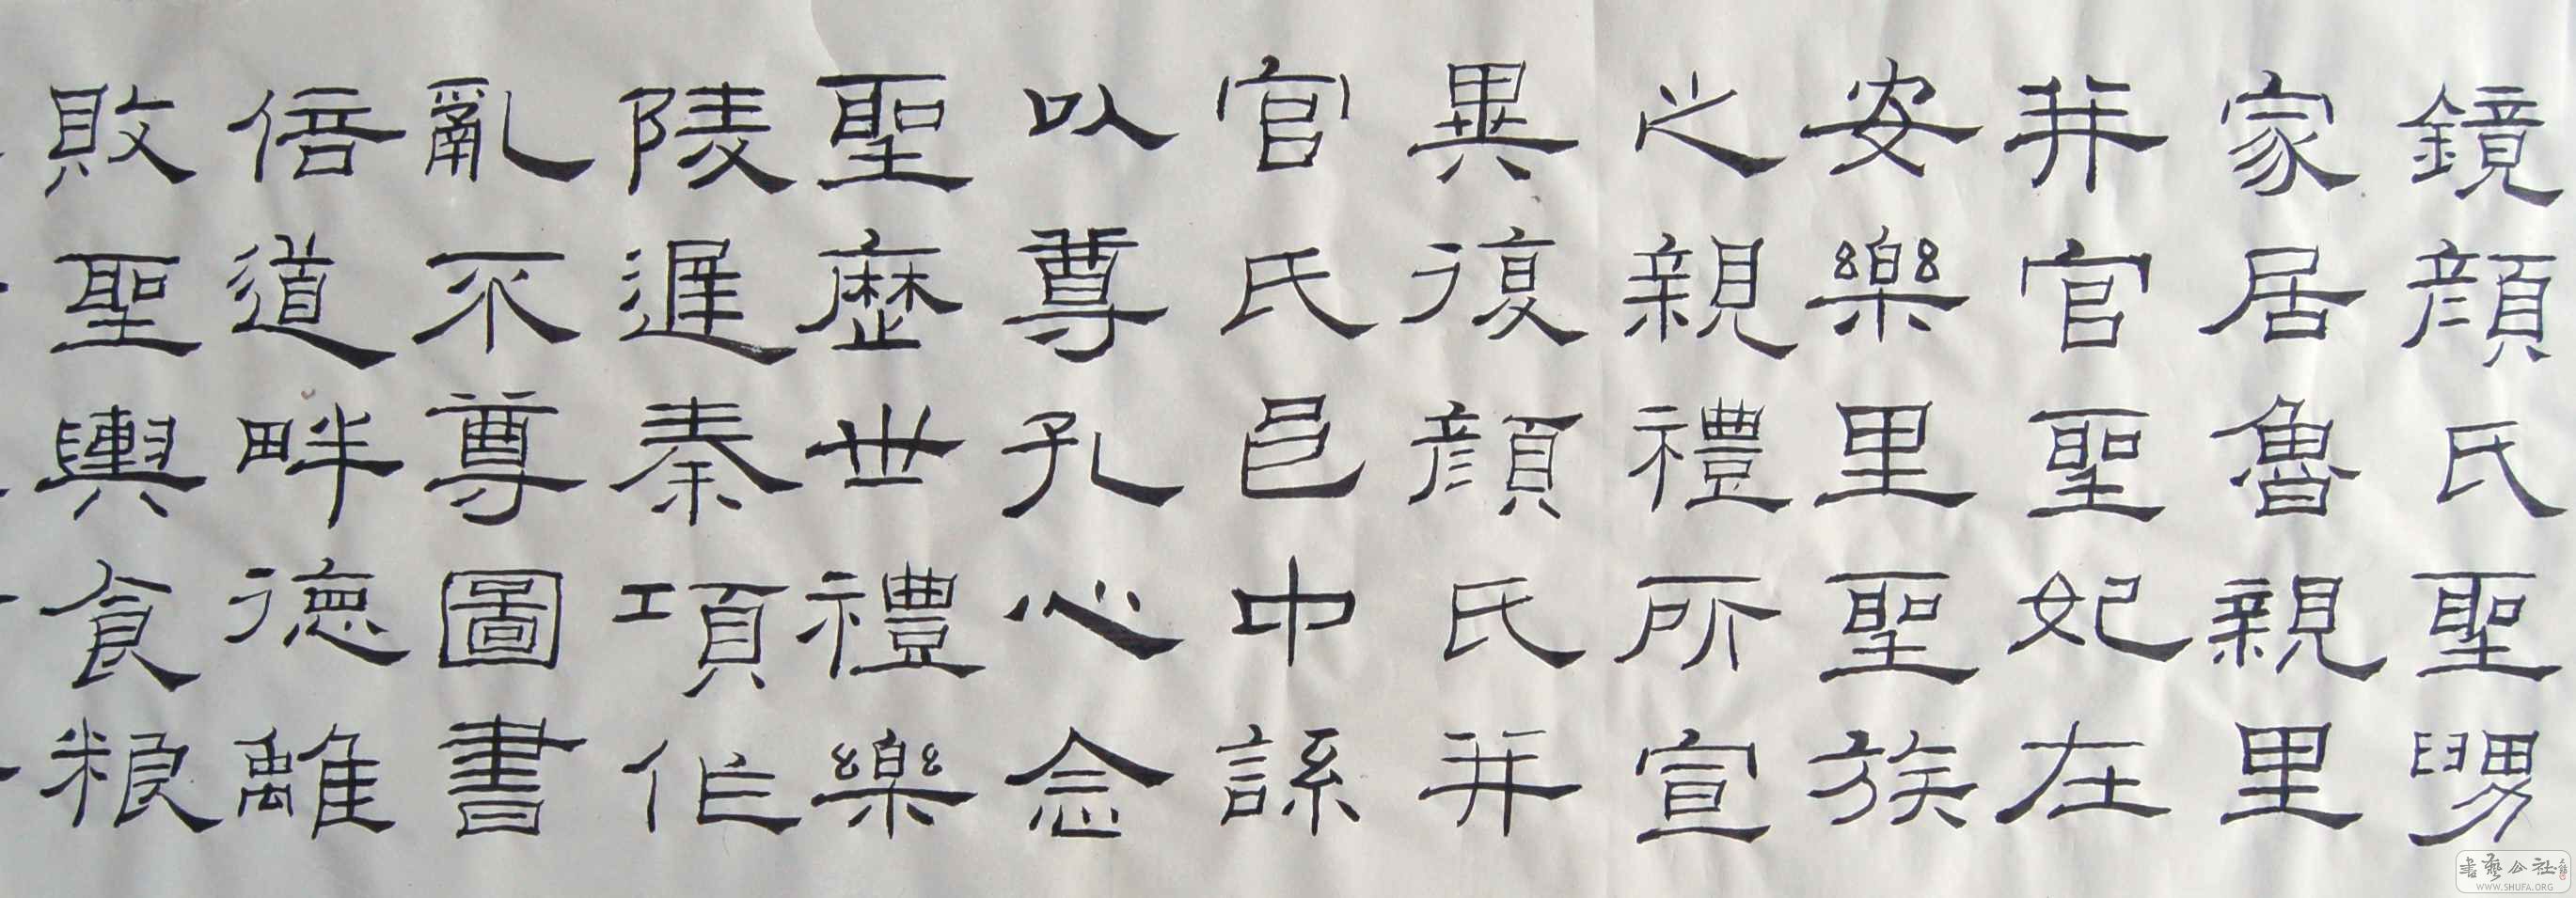 鏡顏氏聖舅
家居魯親里
并官聖妃在
安樂里聖族
之親禮所宣
異復顏氏并
官氏邑中繇
以尊孔心念
聖歷世禮樂
陵遲秦項作
亂不尊圖書
倍道畔德離
敗聖輿食粮
書藝公社
WWW.SHUFA.ORG